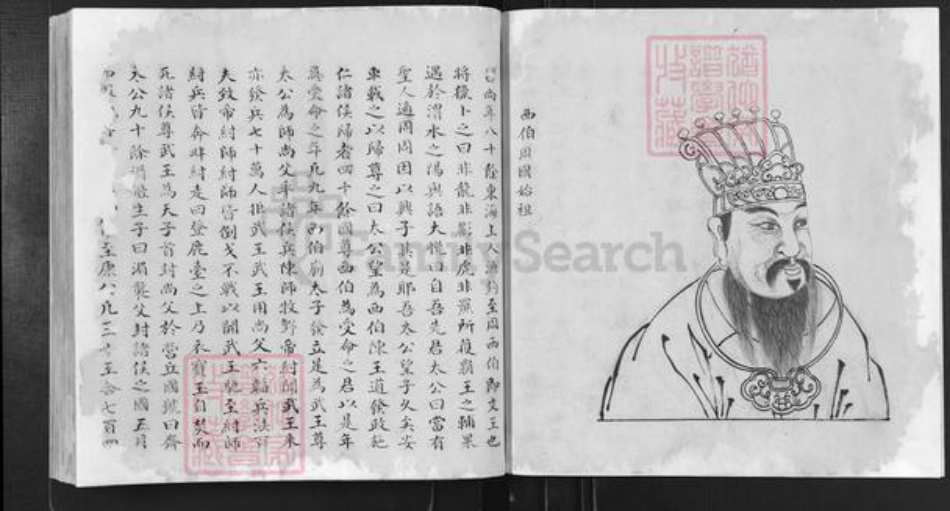 西伯周國始祖
尚年八十餘東海上人漁釣至周西伯即文王也
將獵卜之曰非龍非彲非虎非羆所獲霸王之輔果
遇於渭水之陽與語大悅曰自吾先君太公曰當有
聖人適周周因以興子其是耶吾太公望子久矣
車載之以歸尊之曰太公望為西伯陳王道發政施
仁諸侯歸者四十餘國尊西伯為受命之君以是年
為受命之年九年西伯崩太子發立是為武王尊
太公為師尚父率諸侯兵陳師牧野帝紂聞武王來
亦發兵七十萬人拒武王武王用尚父六韜兵法
夫致帝紂師紂師皆倒戈不戰以開武王馳至紂師
紂兵皆奔畔紂走回登鹿臺之上乃衣寶玉自焚而
死諸侯尊武王為天子首封尚父於營丘國號曰齊
太公九十餘生子曰襲父封諸侯之國五月
至康八凡三十至七百四
FamilySearch